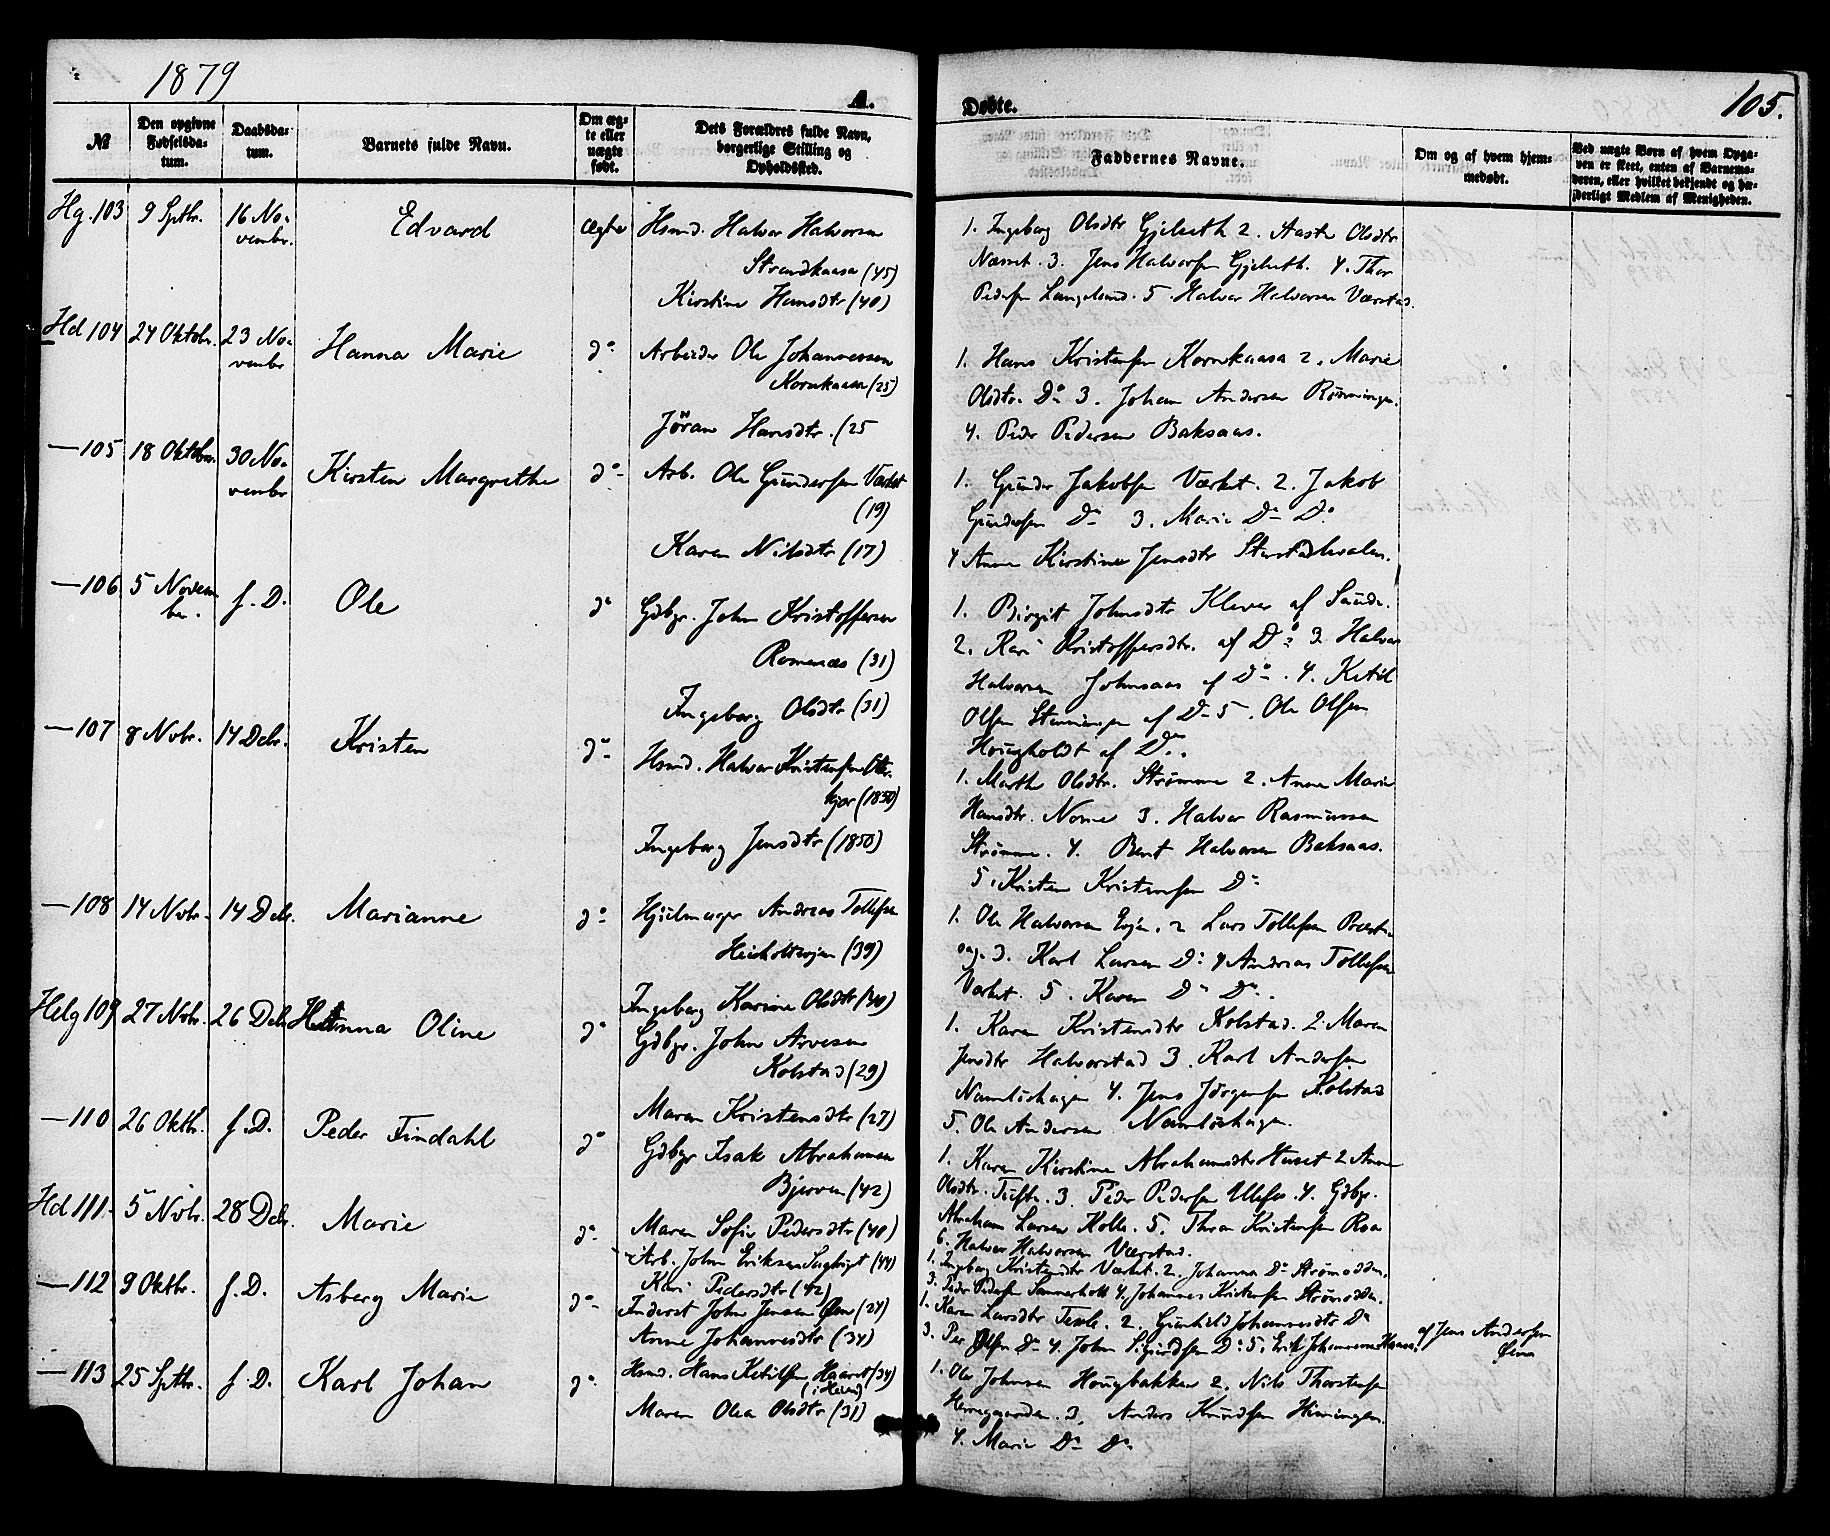 1879
A.
Døbte.
105.
№
Den opgivne Fødselsda-tum.
Daabsda-tum.
Barnets fulde Navn.
Om æg-te eller uægte født.
Dets Forældres fulde Navn, borgerlige Stilling og Opholdssted.
Faddernes Navne.
Om og af hvem hjem-medøbt.
Ved uægte Børn af hvem Opga-ven er skeet, enten af Barnemo-deren, eller hvilket bekjendt og hæ-derligt Medlem af Menigheden.
Hg. 103 9 Sptbr. 16 No-vembr. Edvard ægte Hsmd. Halvor Halvorsen
Strandkaasa (45)
Kirstine Hansdtr (40)
1. Ingeborg Olsdtr Gjelseth 2. Aaste Olsdtr
Næsset. 3. Jens Halvorsen Gjelseth. 4. Thor
Pedersen Langelund. 5. Halvor Halvorsen Værstad.
Hd 104 24 Oktobr. 23 No-vembr Hanna Marie do Arbeider Ole Johannessen
Kornkaasa (25)
Jøran Hansdtr. (25
1. Hans Kristensen Kornkaasa 2. Marie
Olsdtr. Do 3. Johan Andersen Rønningen.
4. Peder Pedersen Baksaas.
— 105 18 Oktober 30 No-vembr Kirsten Margrethe do Arb. Ole Gundersen Værket
(19)
Karen Nilsdtr (17)
1. Gunder Jakobsen Værket. 2. Jakob
Gundersen Do 3. Marie Do Do
4 Anne Kirstine Jensdtr
— 106 5 Novem-ber. f. D. Ole do Gdbgr. John Kristoffersen
Romenæs (31)
Ingeborg Olsdtr (31)
1. Birgit Johnsdtr Kleven af Saude.
2. Kari Kristoffersdtr. af Do 3. Halvor
Halvorsen Johnsaas af Do. 4. Ketil
Olsen af Do 5. Ole Olsen
Hougholdt af Do.
— 107 8 Nvbr. 14 Debr. Kristen do Hsmd. Halvor Kristensen
(1850)
Ingeborg Jensdtr (1850)
1. Marthe Olsdtr. Strømme 2. Anne Marie
Hansdtr. Nome 3. Halvor Rasmussen
Strømme. 4. Bent Halvorsen Baksaas.
5. Kristen Kristensen Do
— 108 14 Nvbr. 14 Debr. Marianne do Hjulmager Andreas Tollefsen
(39)
Ingeborg Karine Olsdtr (40)
1. Ole Halvorsen Eie. 2 Lars Tollefsen
3. Karl Larsen Do 4 Andreas Tollefsen
Værket. 5. Karen Do Do.
Helg 109 27 Nvbr. 26 Debr Oline do Gdbgr. John Arvesen
Kolstad (29)
Maren Kristensdtr (27)
1. Karen Kristensdtr Kolstad. 2. Maren
Jensdtr Halvorstad 3. Karl Andersen
Namløshagen 4. Jens Jørgensen Kolstad
5. Ole Andersen Namløshagen.
— 110 26 Oktbr. f. D. Peder Findahl do Gdbgr Isak Abrahamsen
Bjerven (42)
Maren Sofie Pedersdtr (40)
1. Karen Kirstine Abrahamsdtr Huset 2 Anne
Olsdtr. Tufte. 3. Peder Pedersen Ulefos. 4. Gdbgr.
Abraham Larsen Holla. 5. Thron Kristensen Roa
6. Halvor Halvorsen Værstad.
Hd 111 5 Nvbr. 28 Debr. Marie do Arb. John Eriksen (44)
Kari Pedersdtr (42)
1. Ingeborg Kristensdtr Værket. 2. Johanna Do Strømodden.
3. Peder Pedersen 4. Johannes Kristensen Strømodden.
— 112 9 Oktbr. f. D. Asberg Marie do Inderst John Jensen Øen (24)
Anne Johannesdtr (34)
1. Karen Larsdtr 2. Gunhild Johannesdtr Do
3. Per Olsen Do 4. John Sigurdsen Do 5. Erik Johannessen
af Jens Andersen
Øen
— 113 25 Sptbr. f. D. Karl Johan do Hsmd. Hans Ketilsen (34)
Maren Olea Olsdtr (31)
1. Ole Johnsen Hougbakken 2. Nils Thorstensen
Herregaarden. 3. Anders Knudsen
4. Marie Do Do.